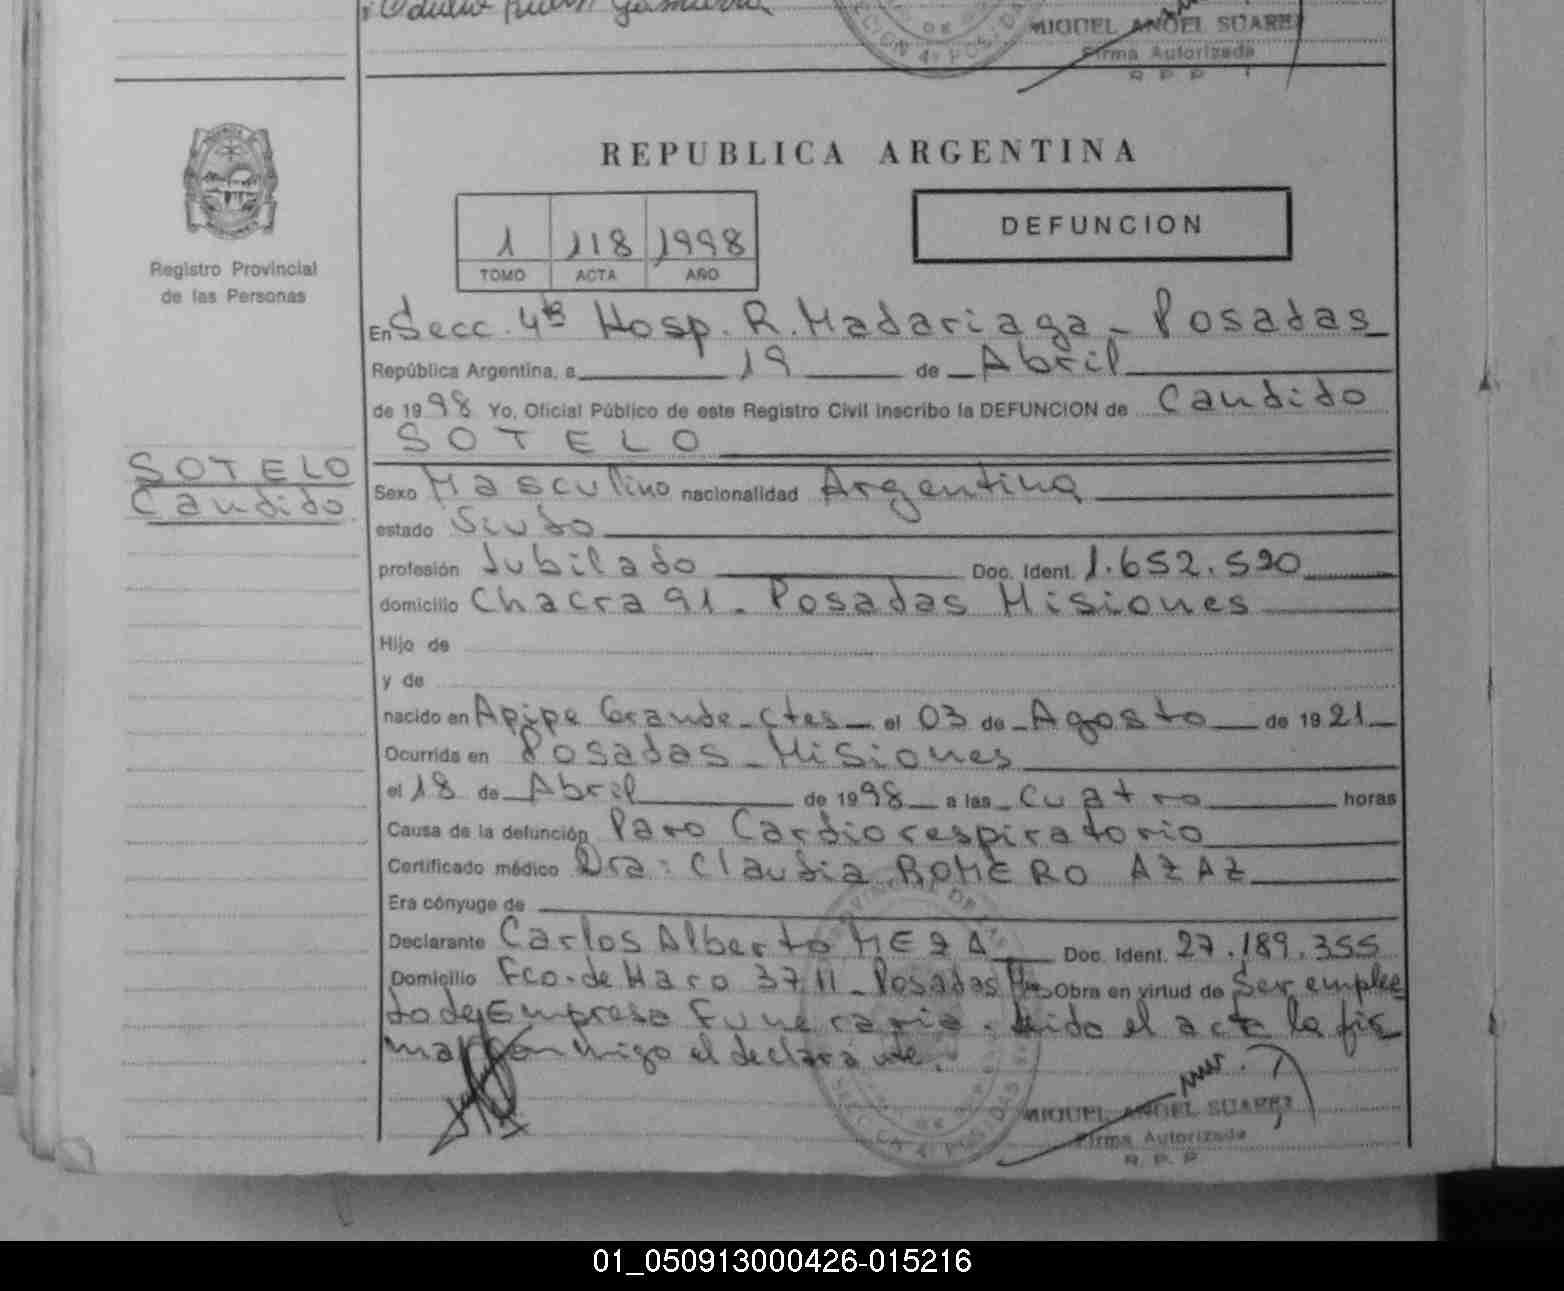 MIGUEL ANGEL SUAREZ
Firma Autorizada
R P P
Registro Provincial
de las Personas
REPUBLICA ARGENTINA
1 118 1998
TOMO ACTA AÑO
DEFUNCION
En Secc. 4ta Hosp. R. Madariaga - Posadas
República Argentina, a 19 de Abril
de 1998 Yo, Oficial Público de este Registro Civil inscribo la DEFUNCION de Candido
SOTELO
SOTELO
Candido
Sexo Masculino nacionalidad Argentina
estado Viudo
profesión Jubilado Doc. Ident. 1.652.590
domicilio Chacra 91 - Posadas Misiones
Hijo de
y de
nacido en Apipe Grande - Ctes - el 03 de Agosto de 1921
Ocurrida en Posadas - Misiones
el 18 de Abril de 1998 a las Cuatro horas
Causa de la defunción Paro Cardiorespiratorio
Certificado médico Dra: Claudia ROMERO AZAZ
Era cónyuge de
Declarante Carlos Alberto MEZA Doc. Ident. 27.189.355
Domicilio Fco. de Haro 3711 - Posadas Mnes Obra en virtud de Ser emplea
do de Empresa Funeraria. Leido el acta la fir
ma conmigo el declarante.
MIGUEL ANGEL SUAREZ
Firma Autorizada
R. P. P
01_050913000426-015216